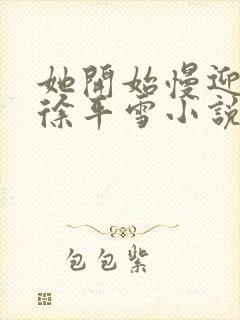 她開始慢迎
徐年雪小說
包包紫